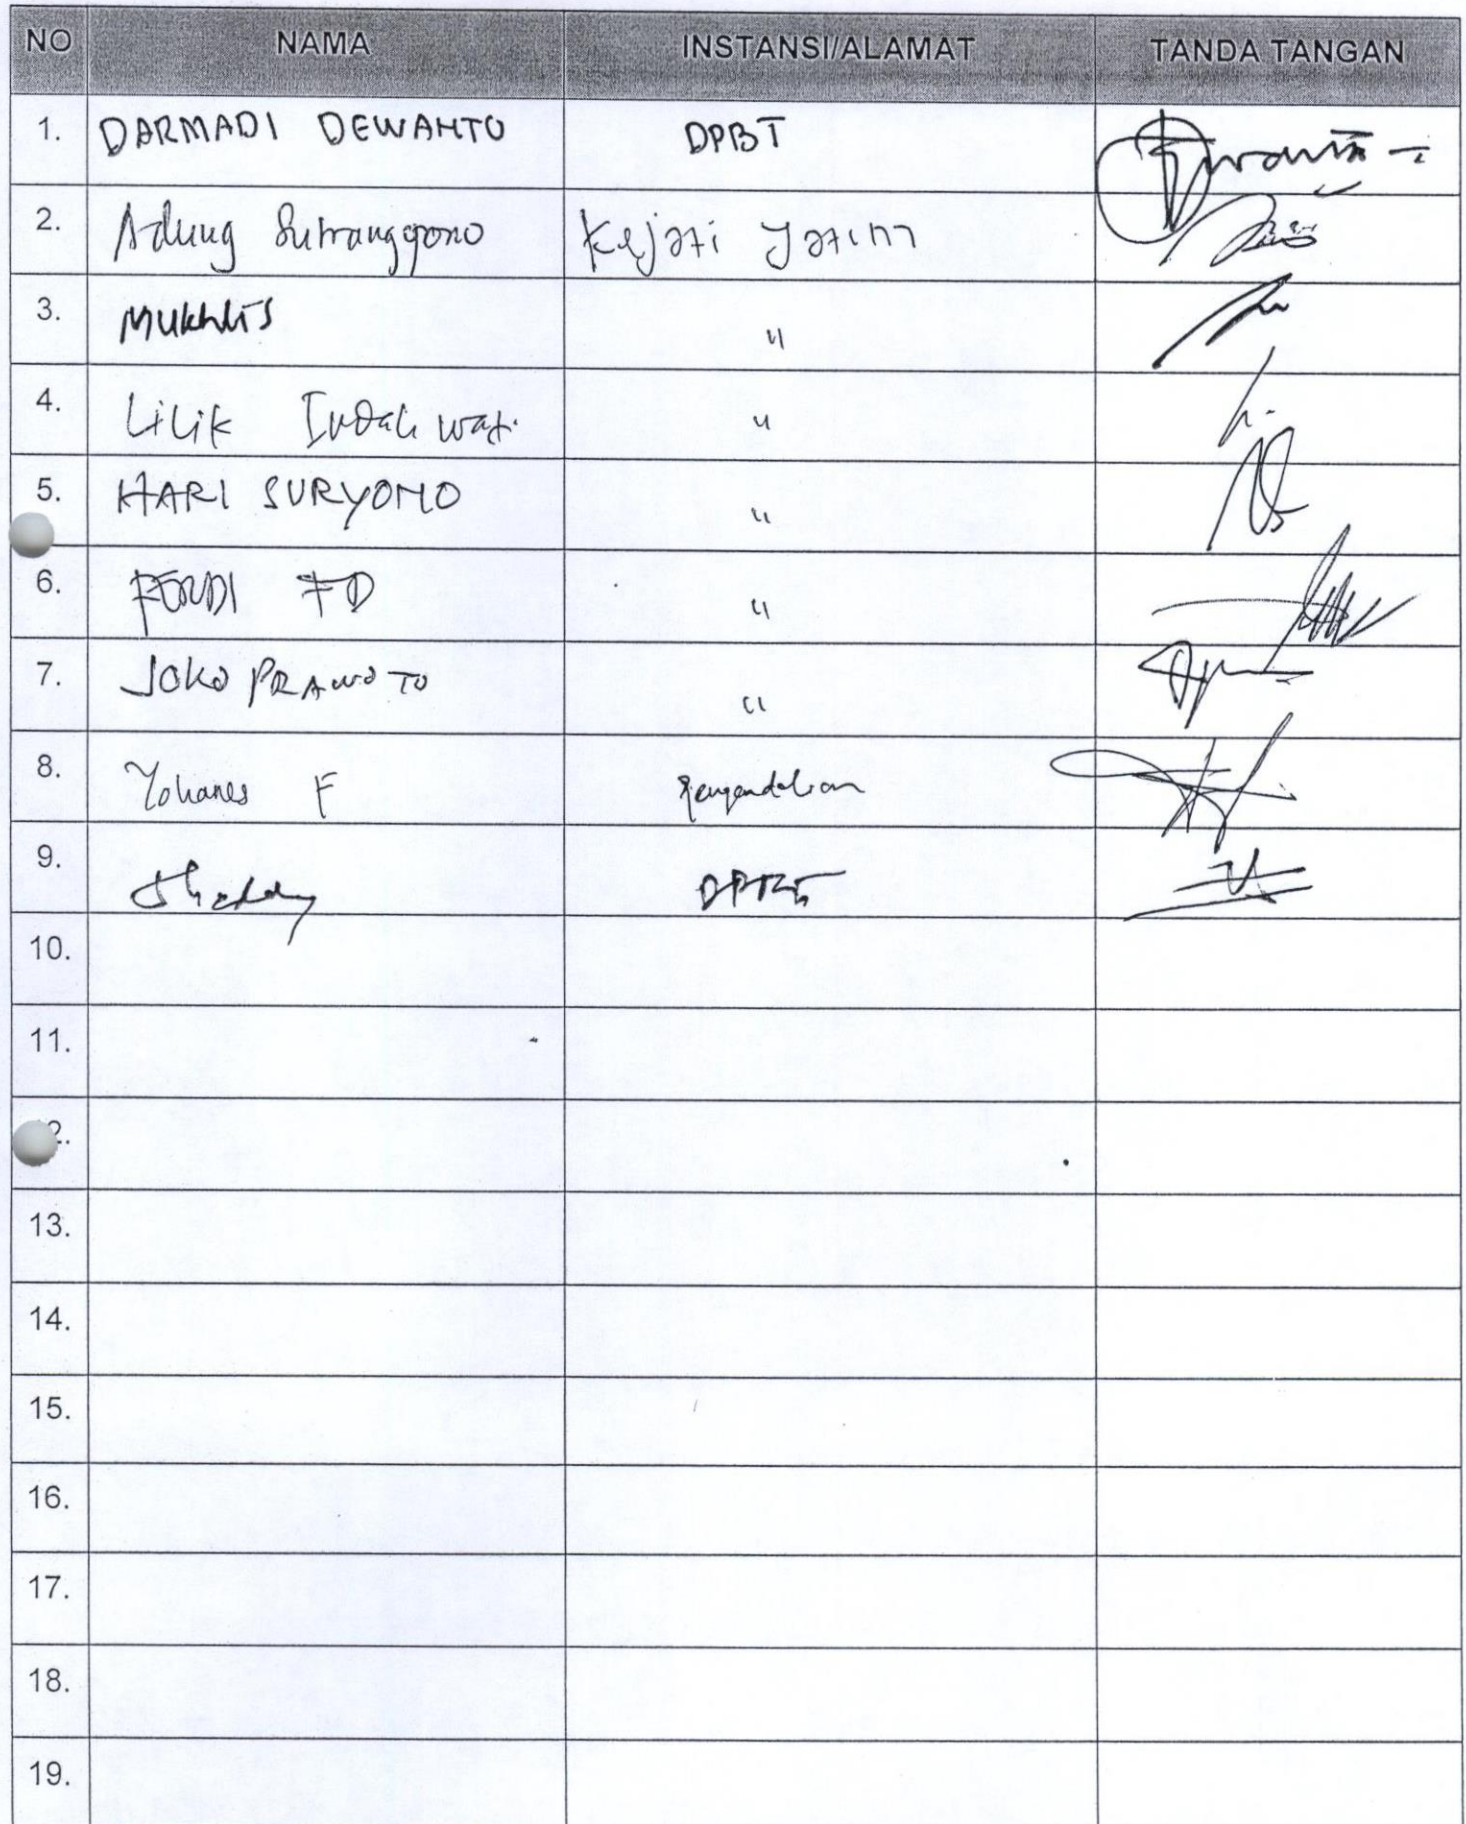 NO NAMA INSTANSI/ALAMAT TANDA TANGAN
1. DARMADI DEWANTO DPBT
2. Adung Sutranggono Kejati Jatim
3. Mukhlis "
4. Lilik Indah wati "
5. HARI SURYONO "
6. FERDI FD "
7. JOKO PRAWOTO "
8. Yohanes F Pengendalian
9. DPBT
10.
11.
2.
13.
14.
15.
16.
17.
18.
19.